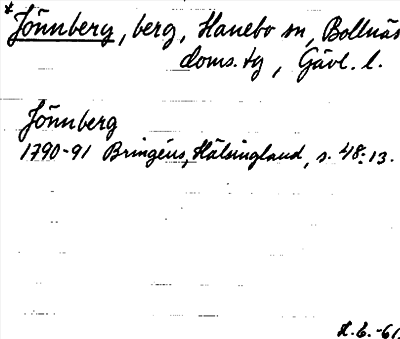 * Jönnberg, berg, Hanebo sn, Bollnäs
doms. tg, Gävl. l.
Jönnberg
1790-91 Bringéus, Hälsingland, s. 48: 13.
H.E. -61.